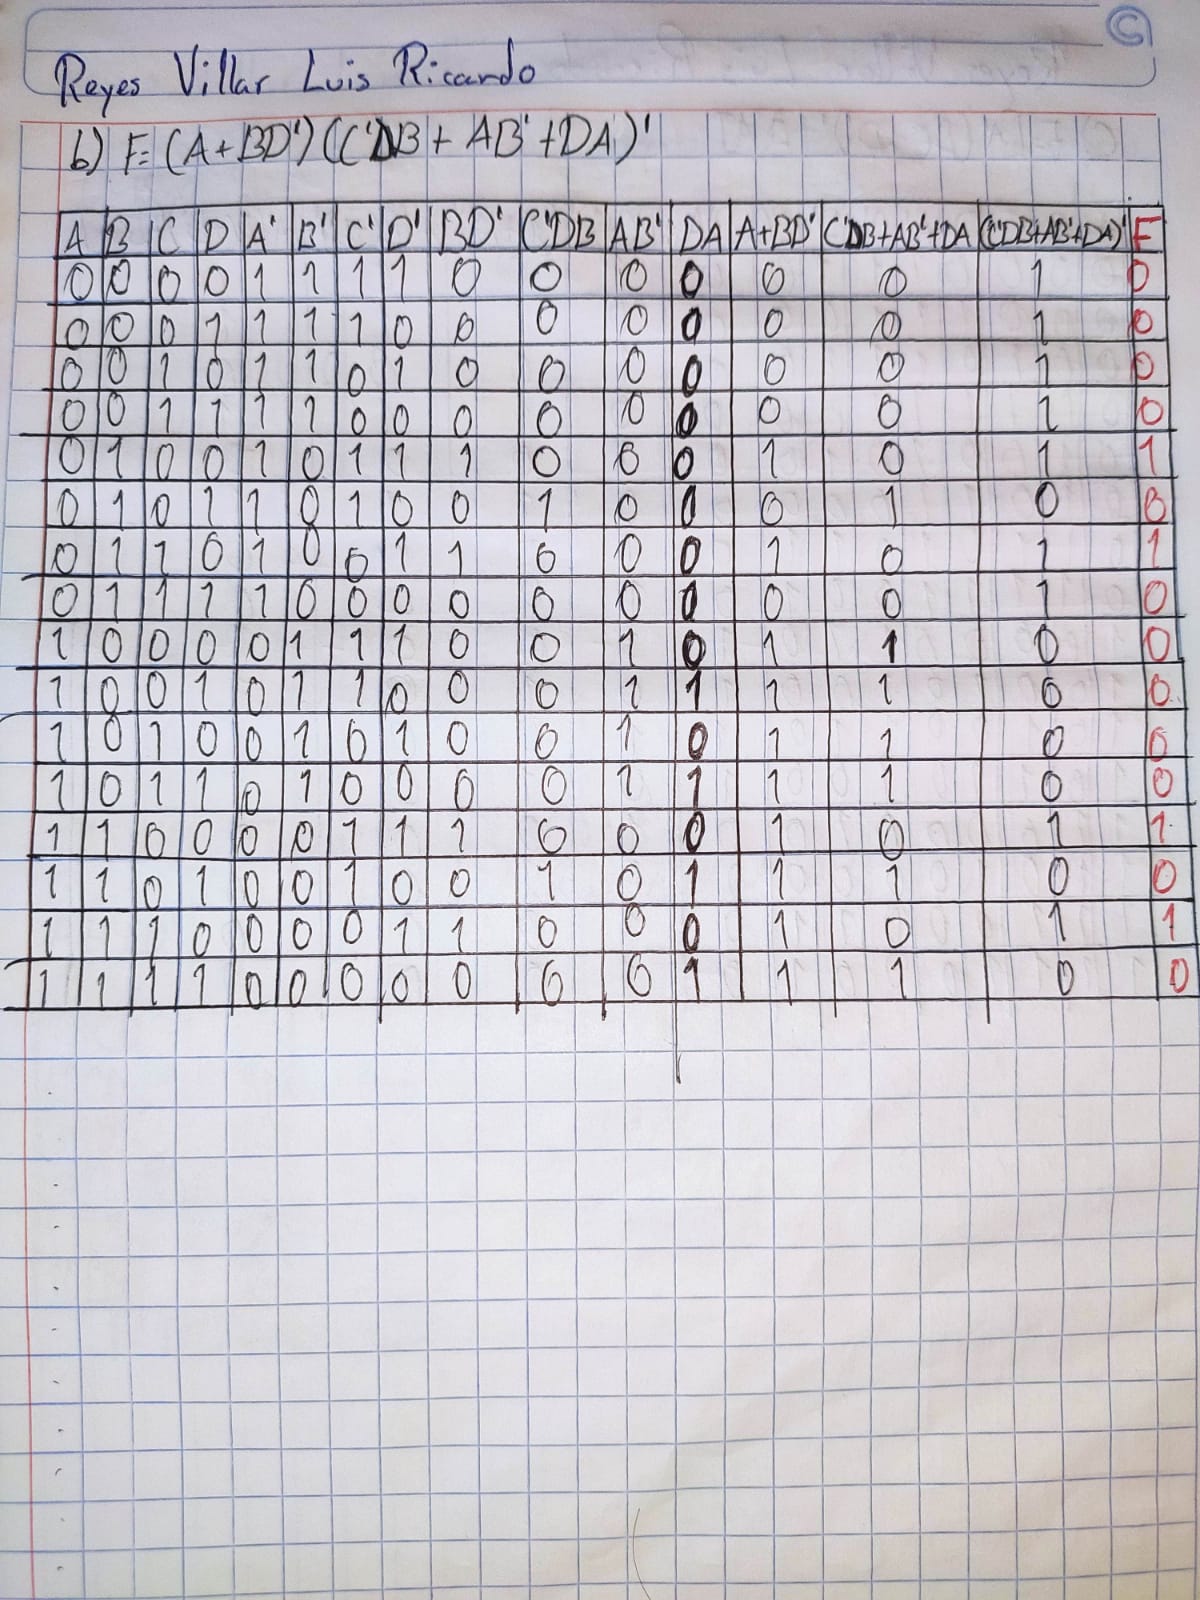 C
Reyes Villar Luis Ricardo
b) F= (A+BD')(C'DB + AB' +DA)'
A B C D A' B' C' D' BD' C'DB AB' DA A+BD' C'DB+AB'+DA (C'DB+AB'+DA)' F
0 0 0 0 1 1 1 1 0 0 0 0 0 0 1 0
0 0 0 1 1 1 1 0 0 0 0 0 0 0 1 0
0 0 1 0 1 1 0 1 0 0 0 0 0 0 1 0
0 0 1 1 1 1 0 0 0 0 0 0 0 0 1 0
0 1 0 0 1 0 1 1 1 0 0 0 1 0 1 1
0 1 0 1 1 0 1 0 0 1 0 0 0 1 0 0
0 1 1 0 1 0 0 1 1 0 0 0 1 0 1 1
0 1 1 1 1 0 0 0 0 0 0 0 0 0 1 0
1 0 0 0 0 1 1 1 0 0 1 0 1 1 0 0
1 0 0 1 0 1 1 0 0 0 1 1 1 1 0 0
1 0 1 0 0 1 0 1 0 0 1 0 1 1 0 0
1 0 1 1 0 1 0 0 0 0 1 1 1 1 0 0
1 1 0 0 0 0 1 1 1 0 0 0 1 0 1 1
1 1 0 1 0 0 1 0 0 1 0 1 1 1 0 0
1 1 1 0 0 0 0 1 1 0 0 0 1 0 1 1
1 1 1 1 0 0 0 0 0 0 0 1 1 1 0 0